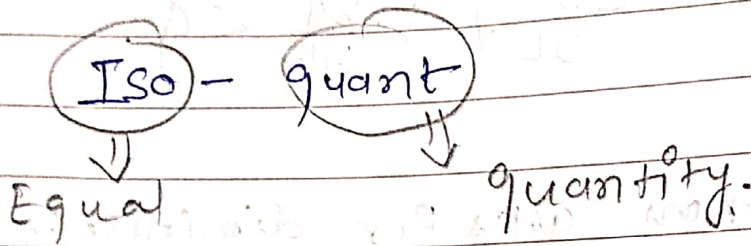 Iso - quant
Equal quantity.